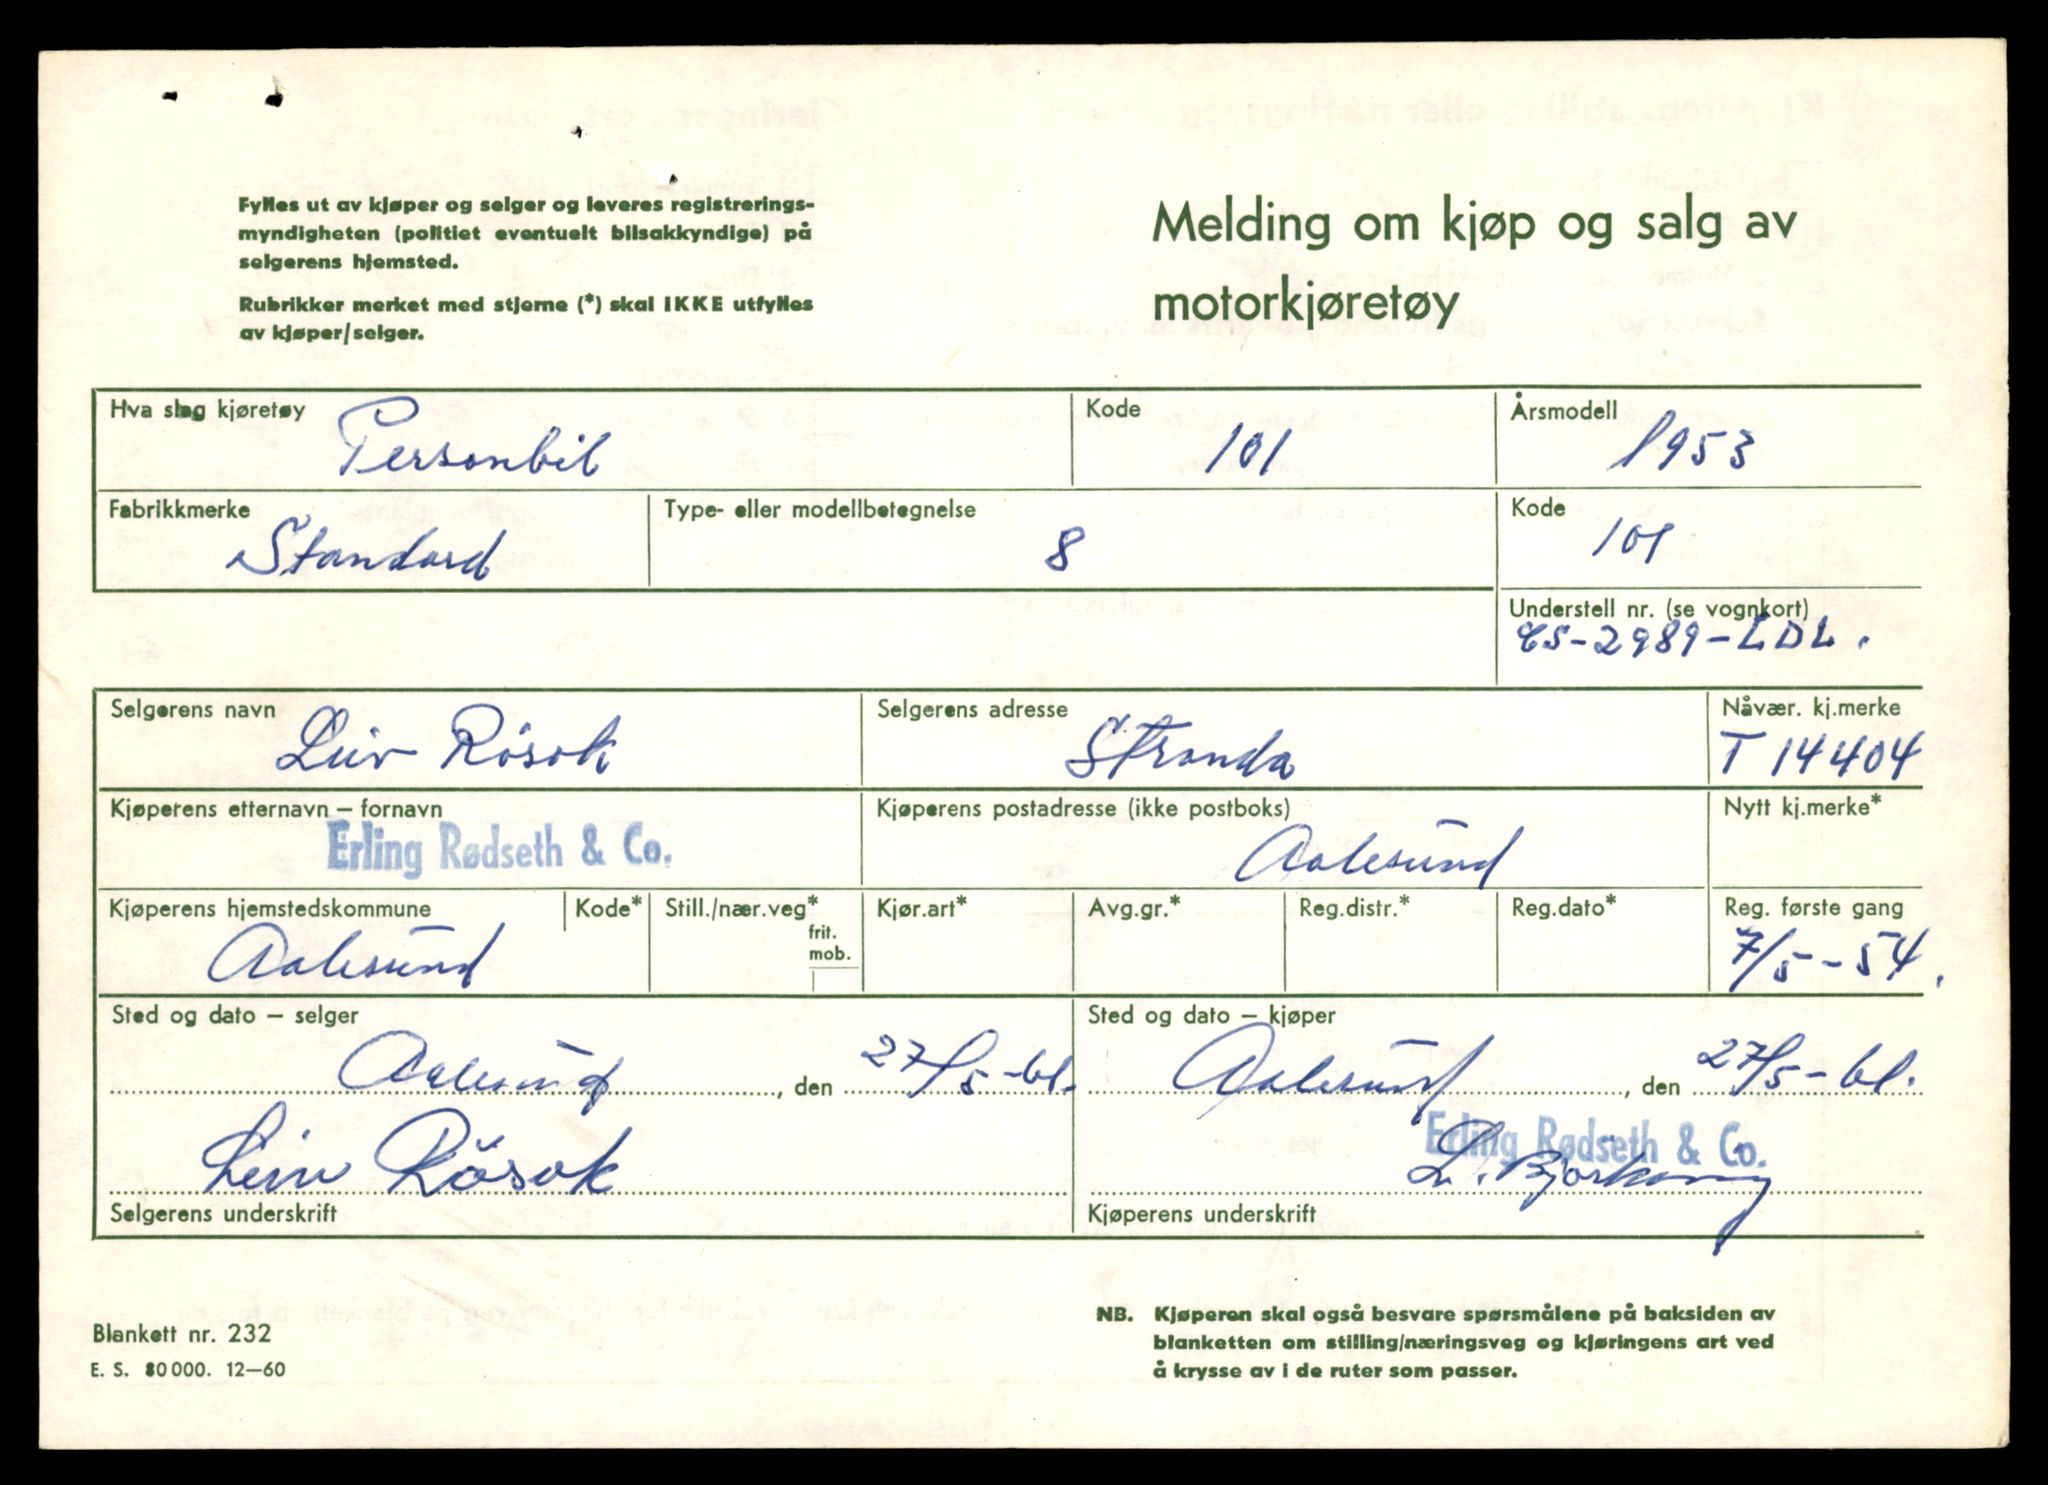 Fylles ut av kjøper og selger og leveres registrerings-
myndigheten (politiet eventuelt bilsakkyndige) på
selgerens hjemsted.
Rubrikker merket med stjerne (*) skal IKKE utfylles
av kjøper/selger.
Melding om kjøp og salg av
motorkjøretøy
Hva slag kjøretøy Kode Årsmodell
Personbil 101 1953
Fabrikkmerke Type- eller modellbetegnelse Kode
Standard 8 101
Understell nr. (se vognkort)
ES-2989-LDL.
Selgerens navn Selgerens adresse Nåvær. kj.merke
Leiv Røsok Stranda T 14404
Kjøperens etternavn – fornavn Kjøperens postadresse (ikke postboks) Nytt kj.merke*
Erling Rødseth & Co. Aalesund
Kjøperens hjemstedskommune Kode* Still./nær.veg* Kjør.art* Avg.gr.* Reg.distr.* Reg.dato* Reg. første gang
frit.
mob.
Aalesund 7/5-54.
Sted og dato – selger Sted og dato – kjøper
Aalesund, den 27/5-61. Aalesund, den 27/5-61.
Erling Rødseth & Co.
Leiv Røsok
Selgerens underskrift Kjøperens underskrift
Blankett nr. 232
E. S. 80 000. 12–60
NB. Kjøperen skal også besvare spørsmålene på baksiden av
blanketten om stilling/næringsveg og kjøringens art ved
å krysse av i de ruter som passer.